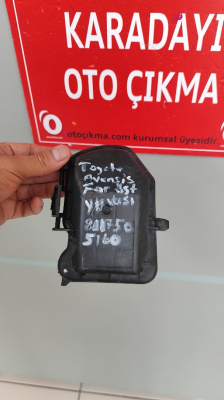 KARADAYI
OTO ÇIKMA
otoçıkma.com kurumsal üyesidir.
Toyota
Avensis
Far üst
yuvası
5160